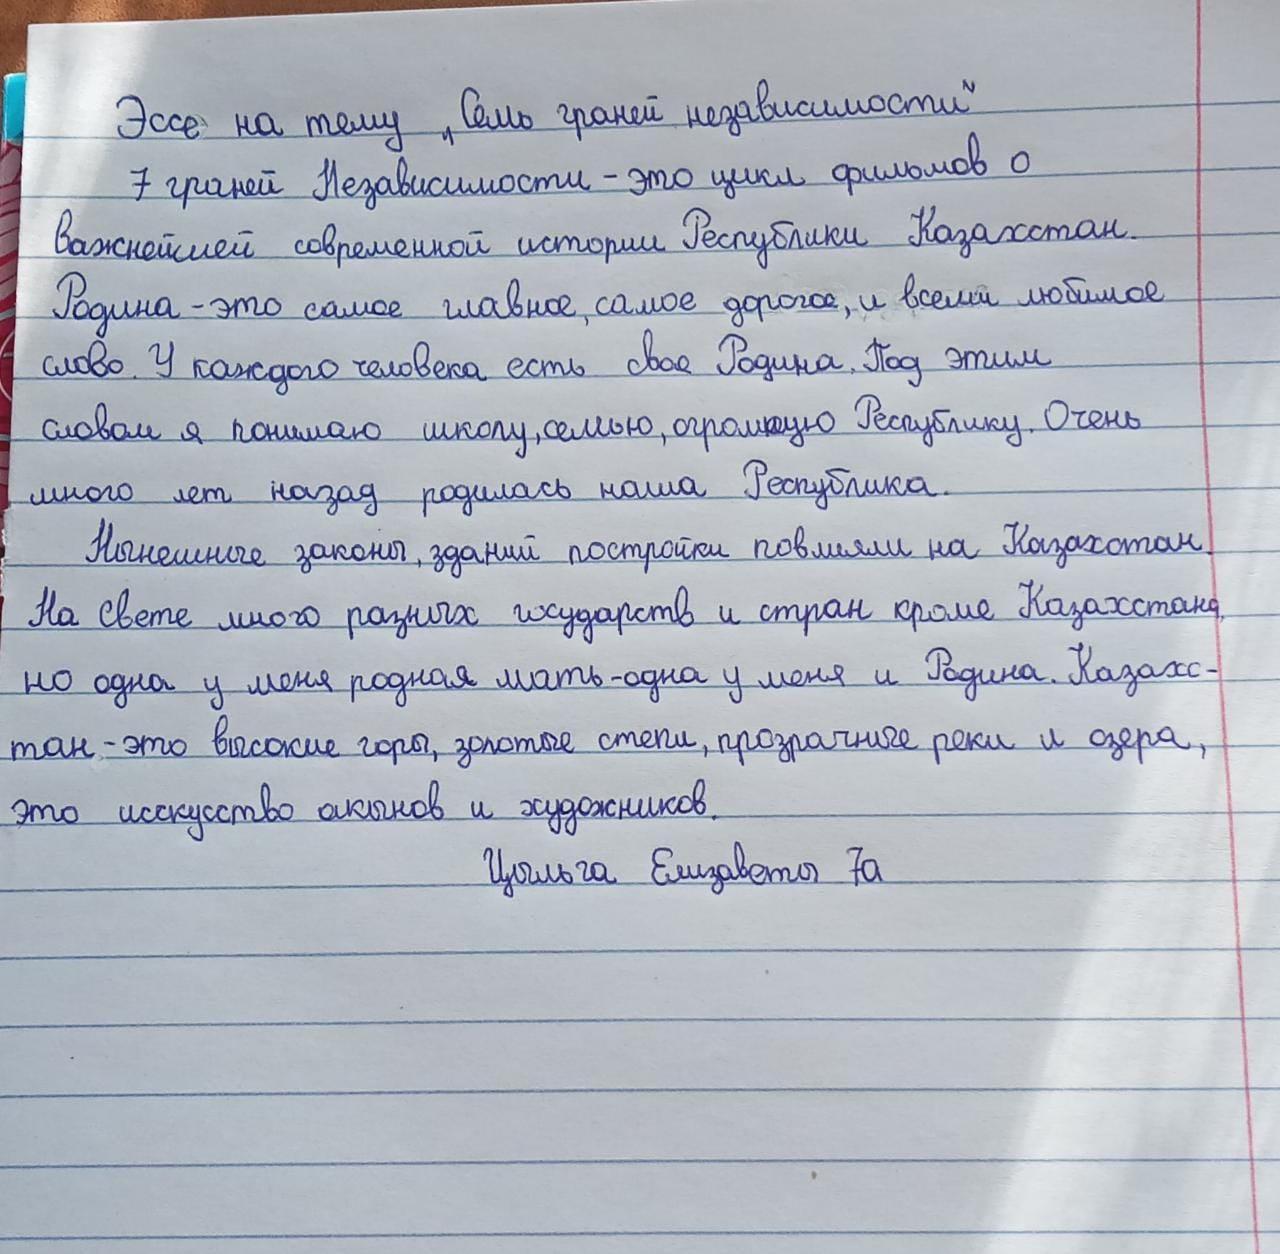 Эссе на тему „Семь граней независимости"
7 граней Независимости - это цикл фильмов о
важнейшей современной истории Республики Казахстан.
Родина - это самое главное, самое дорогое, и всеми любимое
слово. У каждого человека есть свое Родина. Под этим
словом я понимаю школу, семью, огромную Республику. Очень
много лет назад родилась наша Республика.
Нынешние законы, зданий постройки повлияли на Казахстан.
На свете много разных государств и стран кроме Казахстана,
но одна у меня родная мать - одна у меня и Родина. Казахс-
тан - это высокие горы, золотые степи, прозрачные реки и озера,
это исскусство акынов и художников.
Елизаветы 7а